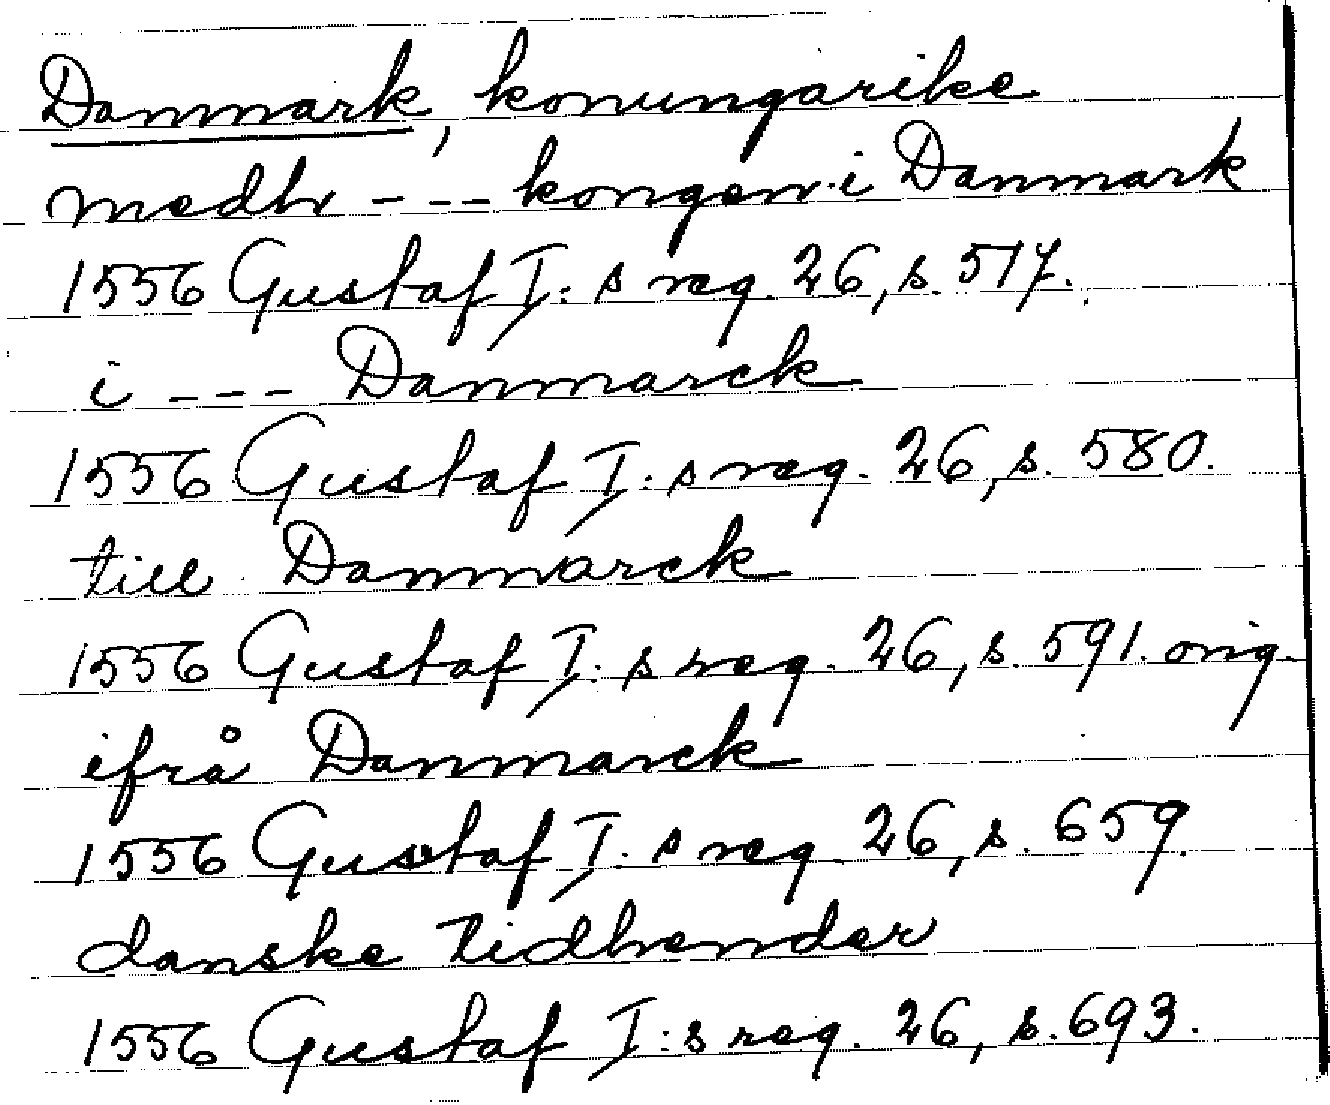 Danmark, konungarike
medh --- kongen i Danmark
1556 Gustaf I:s reg. 26, s. 517.
i --- Danmarck
1556 Gustaf I:s reg. 26, s. 580.
till Danmarck
1556 Gustaf I:s reg. 26, s. 591. orig.
ifrå Danmarck
1556 Gustaf I:s reg. 26, s. 659.
danske tidhender
1556 Gustaf I:s reg. 26, s. 693.